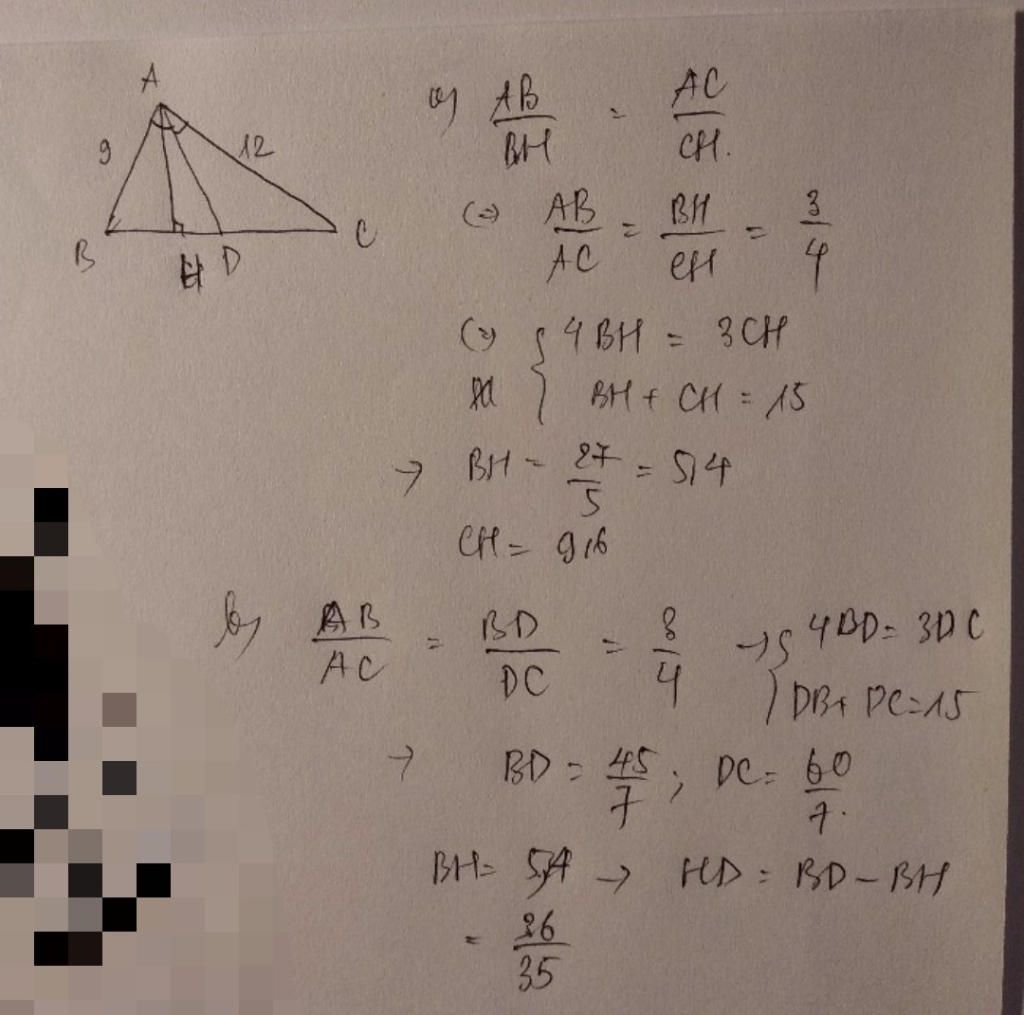 A
9 12
B H D C
a) AB/BH = AC/CH.
(=) AB/AC = BH/CH = 3/4
(=) { 4BH = 3CH
BH + CH = 15
→ BH = 27/5 = 5,4
CH = 9,6
b) AB/AC = BD/DC = 3/4 → { 4BD = 3DC
DB + DC = 15
→ BD = 45/7 ; DC = 60/7.
BH = 5,4 → HD = BD - BH
= 36/35